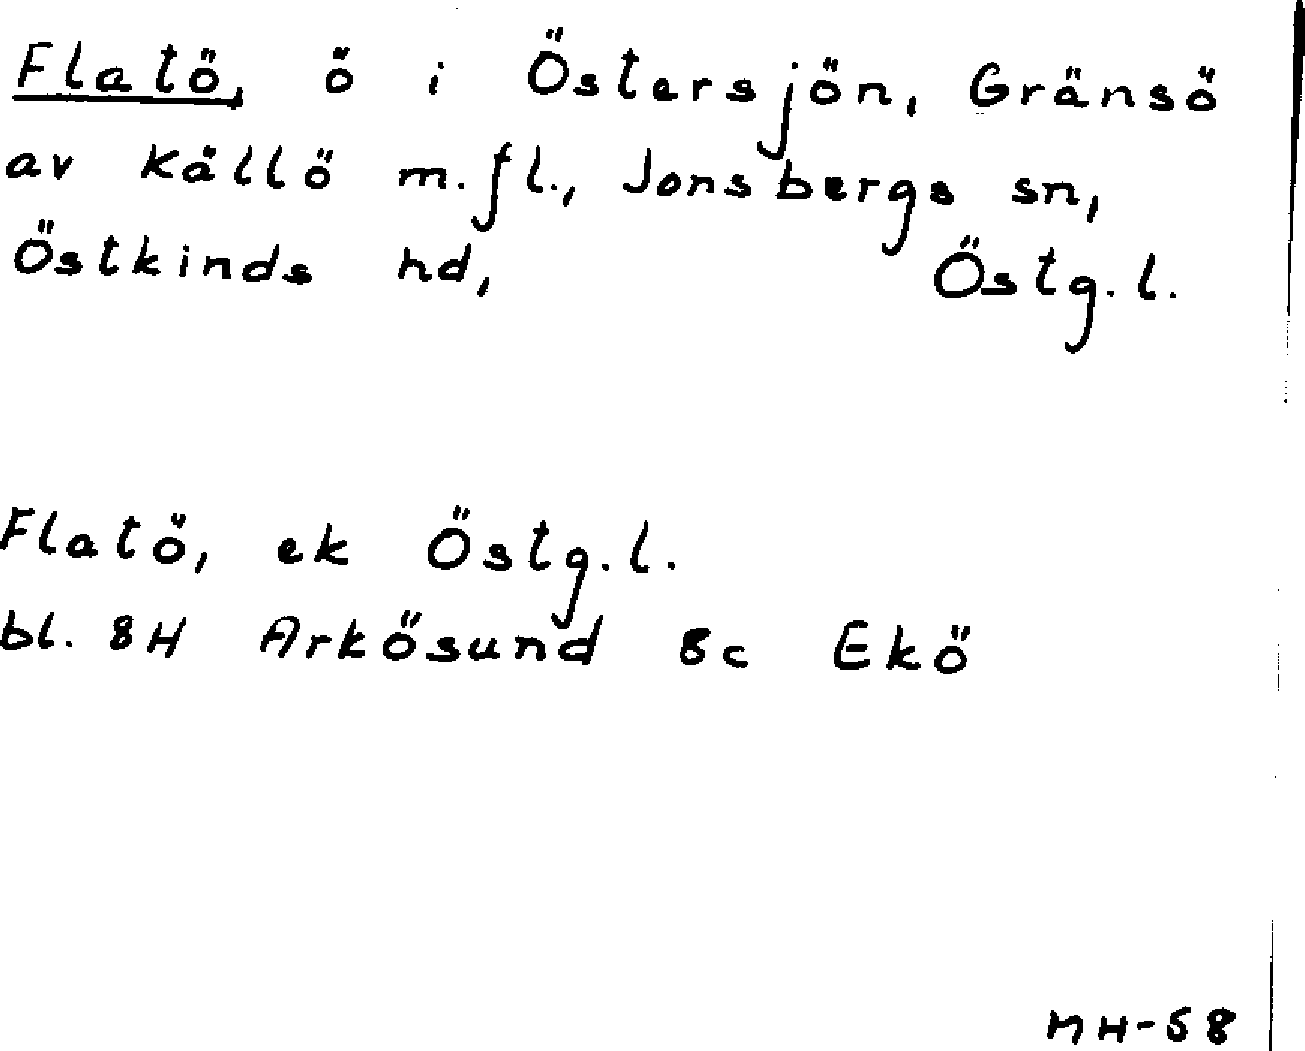 Flatö, ö i Östersjön, Gränsö
av Källö m.fl., Jonsbergs sn,
Östkinds hd, Östg.l.
Flatö, ek Östg.l.
bl. 8H Arkösund 8c Ekö
MH-58